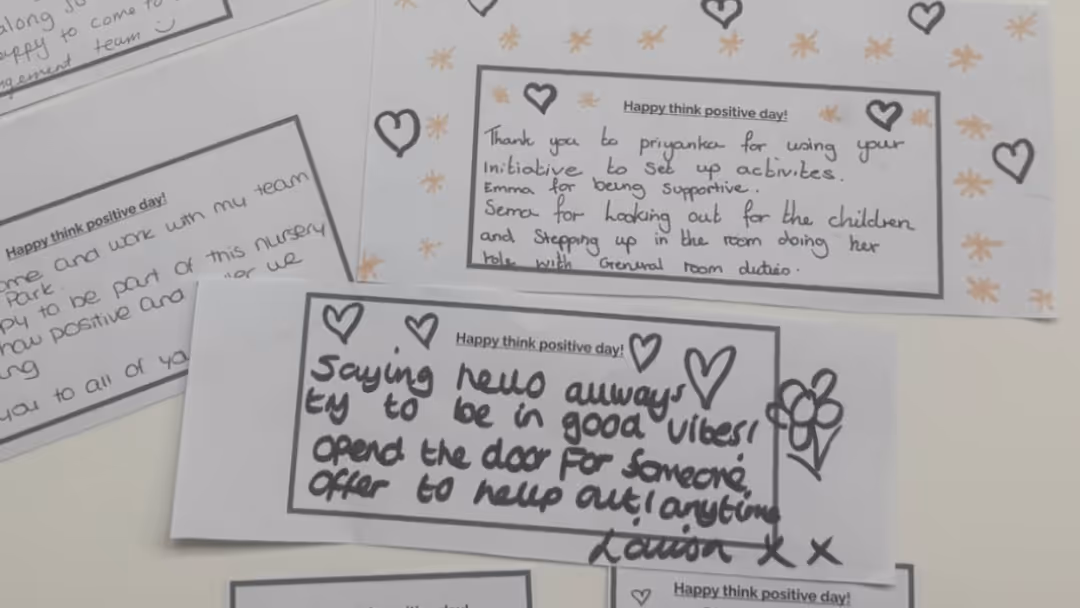 along
happy to come to
team
Happy think positive day!
Thank you to priyanka for using your
initiative to set up activites.
Emma for being supportive.
Sema for looking out for the children
and Stepping up in the room doing her
role with General room duties.
Happy think positive day!
and work with my team
Park.
to be part of this nursery
how positive and
we
you to all of
Happy think positive day!
Saying hello allways
try to be in good vibes!
opend the door For Someone,
offer to hellp out! anytime
Louisa x x
Happy think positive day!